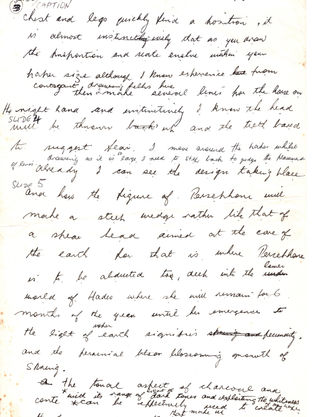 CAPTION
chest and legs quickly find a position, it
is almost instinctively that as you draw
the proportion and scale evolve within your
paper size although I know experience from
drawing helps
then I make several lines for the horse on
the right hand and instinctively I know the head
SLIDE 4
will be thrown back up and the teeth bared
to suggest fear. I move around the
drawing as it is large I need to step back to judge the
already I can see the design taking place
SLIDE 5
and how the figure of Persephone will
make a steep wedge rather like that of
a spear head aimed at the core of
the earth for that is where Persephone
is to be abducted too, deep into the under
lower
world of Hades where she will remain for 6
months of the year until her emergence to
the light of earth signifies
and the perennial blossoming growth of
Spring.
The tonal aspect of charcoal and
conte with its range of dark tones and exploiting the whiteness
can be effectively used to create
that make us